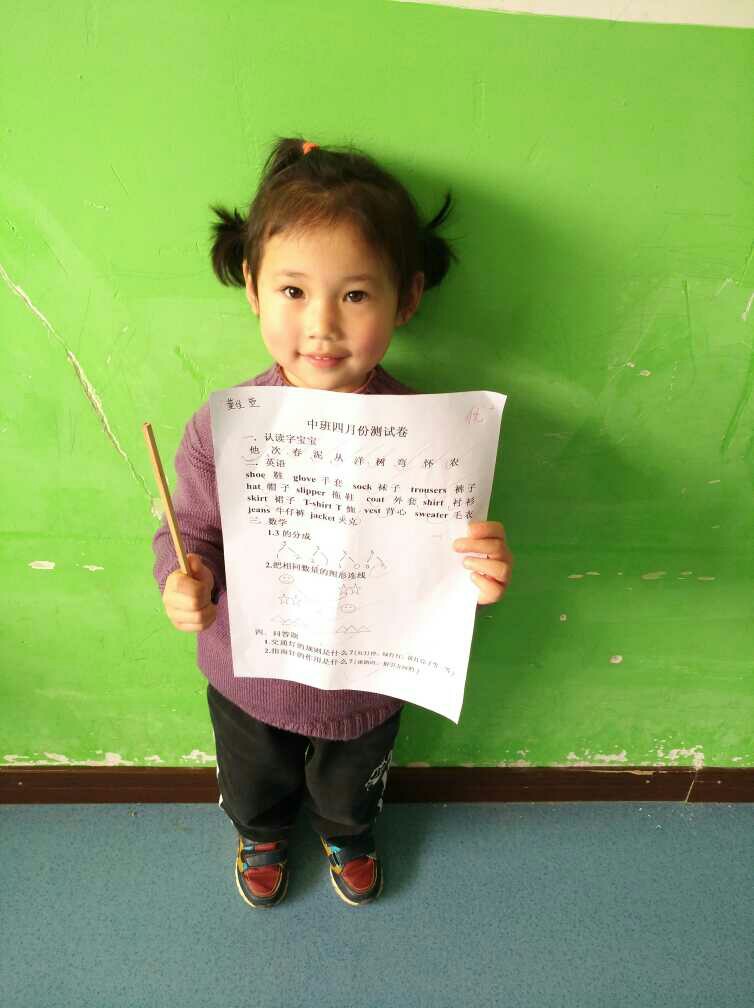 优
中班四月份测试卷
一. 认读字宝宝
他 次 春 泥 从 洋 树 弯 怀 农
二. 英语
shoe 鞋 glove 手套 sock 袜子 trousers 裤子
hat 帽子 slipper 拖鞋 coat 外套 shirt 衬衫
skirt 裙子 T-shirt T恤 vest 背心 sweater 毛衣
jeans 牛仔裤 jacket 夹克
三. 数学
1.3 的分成
2.把相同数量的图形连线
四. 问答题
1.交通灯的规则是什么?
2.指南针的作用是什么?